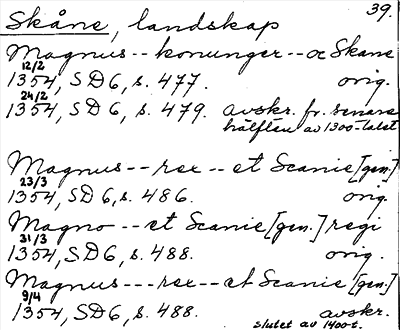 39.
Skåne, landskap
Magnus -- konunger -- oc Skane
12/2
1354, SD6, s. 477. orig.
24/2
1354, SD6, s. 479. avskr. fr. senare
hälften av 1300-talet
Magnus -- rex -- et Scanie [gen.]
23/3
1354, SD6, s. 486. orig.
Magno -- et Scanie [gen.] regi
31/3
1354, SD6, s. 488. orig.
Magnus --- rex -- et Scanie [gen.]
9/4
1354, SD6, s. 488. avskr.
slutet av 1400-t.